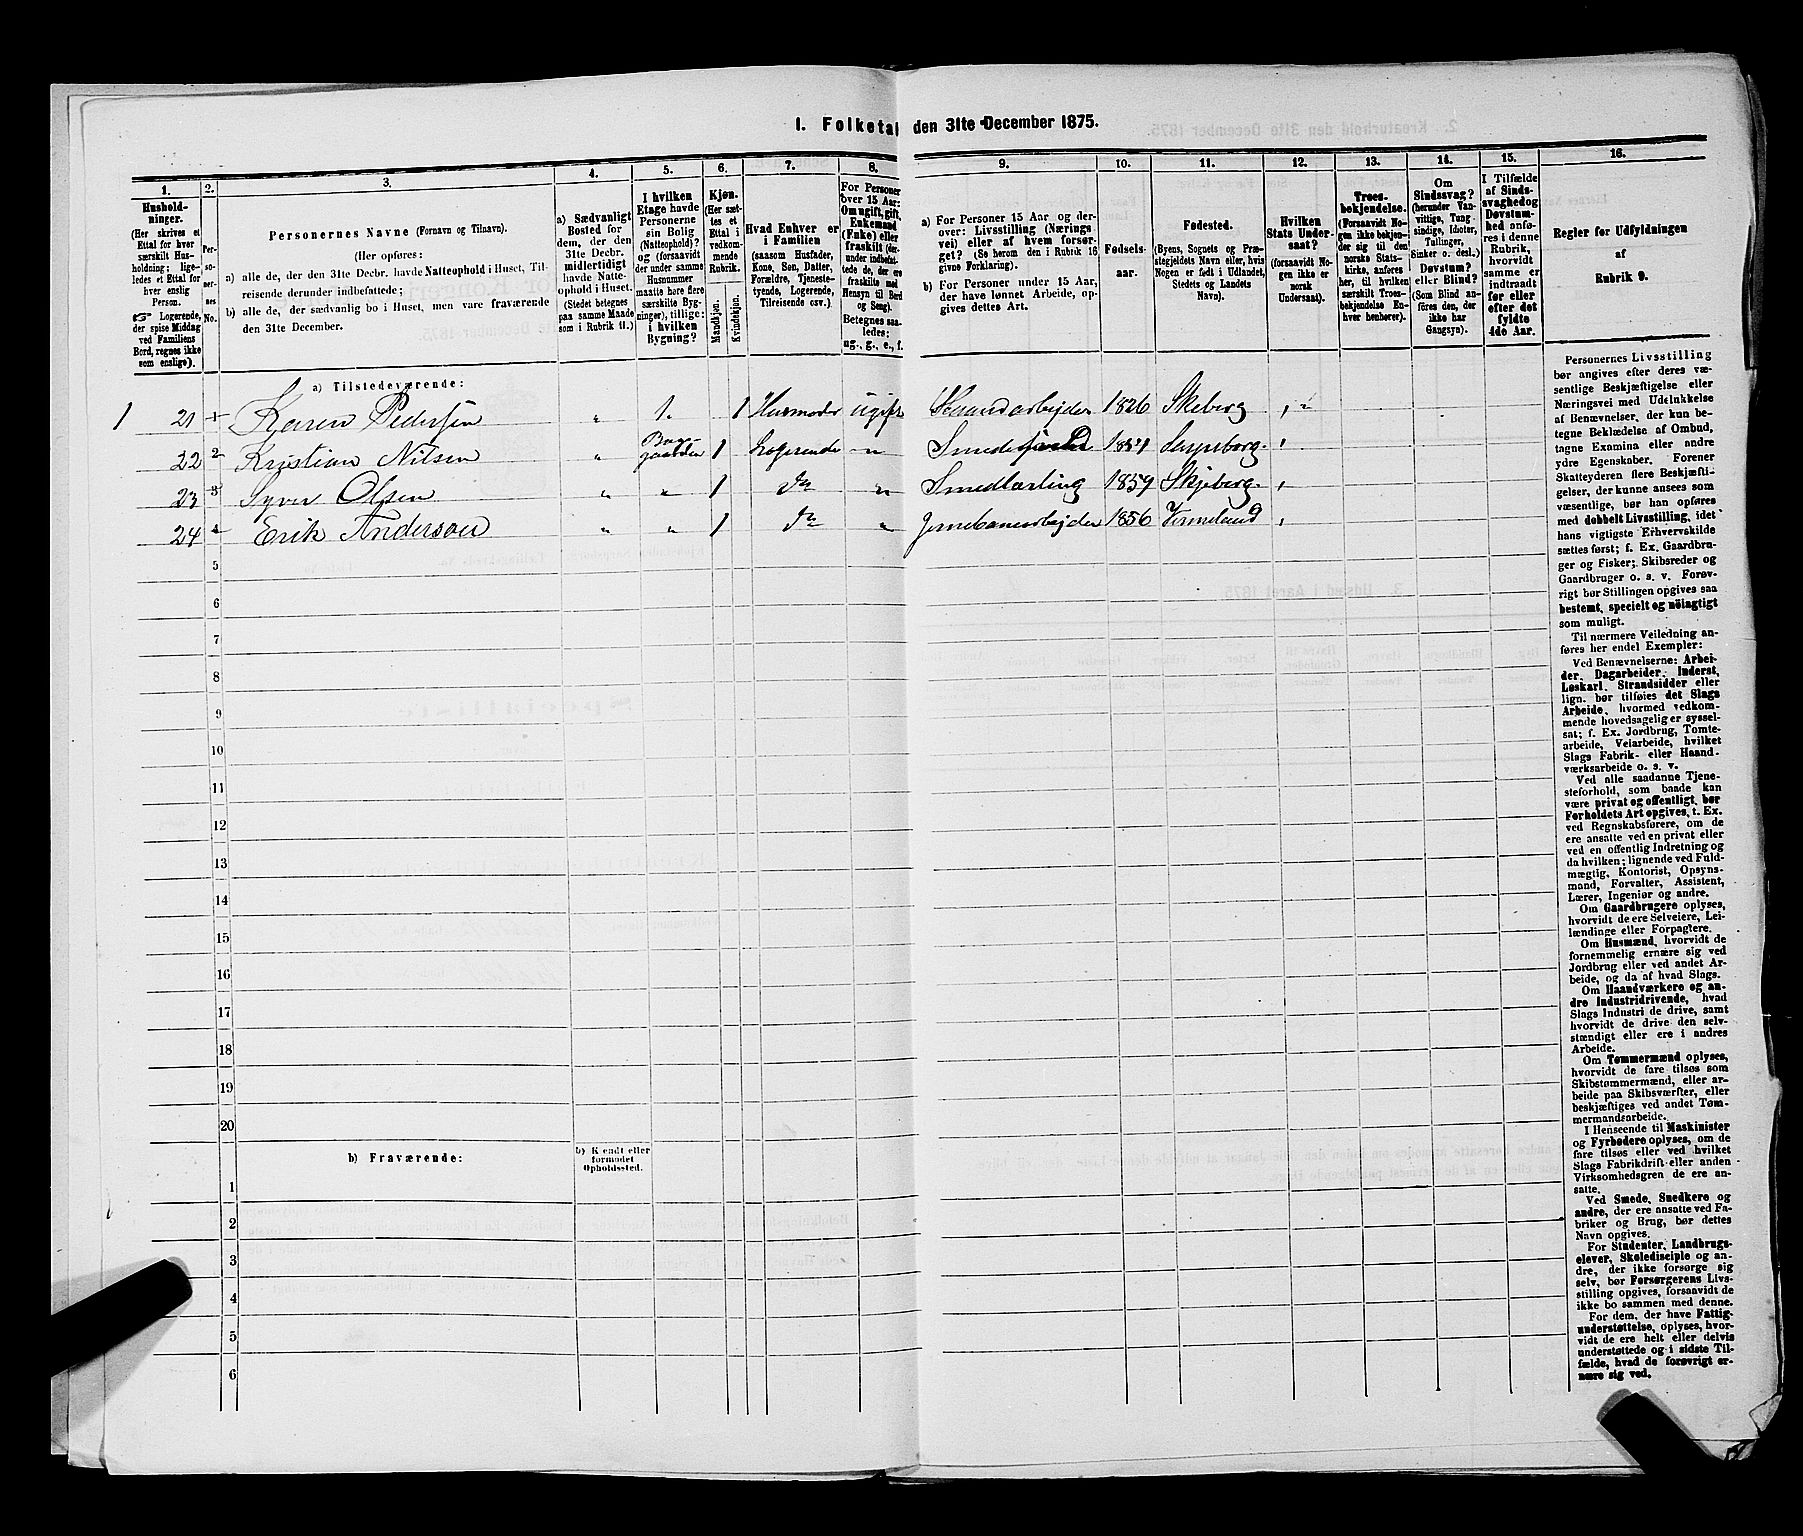 1. Folketal den 31te December 1875.
1. 2. 3. 4. 5. 6. 7. 8. 9. 10. 11. 12. 13. 14. 15. 16.
Hushold-
ninger.
(Her skrives et
Ettal for hver
særskilt Hus-
holdning; lige-
ledes et Ettal
for hver
enslig
Person.
Logerende,
der spise Middag
ved Familiens
Bord, regnes ikke
som enslige).
Per-
so-
ner-
nes
No.
Personernes Navne (Fornavn og Tilnavn).
(Her opføres:
a) alle de, der den 31te Decbr. havde Natteophold i Huset, Til-
reisende derunder indbefattede;
b) alle de, der sædvanlig bo i Huset, men vare fraværende
den 31te December.
a) Sædvanligt
Bosted for
dem, der den
31te Decbr.
midlertidigt
havde Natte-
ophold i Huset.
(Stedet betegnes
paa samme Maade
som i Rubrik 11.)
I hvilken
Etage havde
Personerne
sin Bolig
(Natteophold)?
og (forsaavidt
der under samme
Husnummer
maatte høre flere
særskilte Byg-
ninger), tillige:
i hvilken
Bygning?
Kjøn.
(Her sæt-
tes et
Ettal i
vedkom-
mende
Rubrik.
Mandkjøn.
Kvindekjøn.
Hvad Enhver er
i Familien
(saasom Husfader,
Kone, Søn, Datter,
Forældre, Tjeneste-
tyende, Logerende,
Tilreisende osv.).
For Personer
over 15 Aar:
Om ugift, gift,
Enkemand
(Enke) eller
fraskilt (der-
under indbefat-
tede de, der ere
fraskilte med
Hensyn til Bord
og Seng).
Betegnes saa-
ledes:
ug., g., e., f.
a) For Personer 15 Aar og der-
over: Livsstilling (Nærings
vei) eller af hvem forsør-
get? (Se herom den i Rubrik 16
givne Forklaring).
b) For Personer under 15 Aar,
der have lønnet Arbeide, op-
gives dettes Art.
Fødsels-
aar.
Fødested.
(Byens, Sognets og Præ-
stegjeldets Navn eller, hvis
Nogen er født i Udlandet,
Stedets og Landets
Navn).
Hvilken
Stats Under-
saat?
(forsaavidt No-
gen ikke er
norsk
Undersaat).
Troes-
bekjendelse.
(Forsaavidt No-
gen ikke bekjen-
der sig til den
norske Stats-
kirke, anføres
her, til hvilken
særskilt Troes-
bekjendelse En-
hver henhører).
Om
Sindssvag?
(herunder Van-
vittige, Tung-
sindige, Idioter,
Tullinger,
Sinker o. desl.)
Døvstum?
eller Blind?
(Som Blind an-
føres den, der
ikke har
Gangsyn).
I Tilfælde
af Sinds-
svaghed og
Døvstum-
hed anfø-
res i denne
Rubrik,
hvorvidt
samme er
indtraadt
før eller
efter det
fyldte
4de Aar.
Regler for Udfyldningen
af
Rubrik 9.
a) Tilstedeværende:
1 21 1 Karen Pedersen " 1. 1 Husmodr Ugift Haandarbejder 1826 Skeberg
22 2 Kristian Nilsen " Bag-
gaarden 1 Logerende " Sarpsborg
23 3 Syver Olsen " " 1 do " Smedlærling 1859 Skjeberg
24 4 Erik Anderson " " 1 do " Jernebanearbejder 1856 Vermeland
5
6
7
8
9
10
11
12
13
14
15
16
17
18
19
20
b) Fraværende:
b) Kjendt eller
formodet
Opholdssted.
1
2
3
4
5
6
Personernes Livsstilling
bør angives efter deres væ-
sentlige Beskjæftigelse eller
Næringsvei med Udelukkelse
af Benævnelser, der kun be-
tegne Beklædelse af Ombud,
tagne Examina eller andre
ydre Egenskaber. Forener
Skatteyderen flere Beskjæfti-
gelser, der kunne ansees som
væsentlige, bør han opføres
med dobbelt Livsstilling, idet
hans vigtigste Erhvervskilde
sættes først; f. Ex. Gaardbru-
ger og Fisker; Skibsreder og
Gaardbruger o. s. v. Forøv-
rigt bør Stillingen opgives saa
bestemt, specielt og nöiagtigt
som muligt.
Til nærmere Veiledning an-
føres her endel Exempler:
Ved Benævnelserne: Arbei-
der, Dagarbeider, Inderst,
Løskarl, Strandsidder eller
lign. bør tilføies det Slags
Arbeide, hvormed vedkom-
mende hovedsagelig er syssel-
sat; f. Ex. Jordbrug, Tomte-
arbeide, Veiarbeide, hvilket
Slags Fabrik- eller Haand-
værksarbeide o. s. v.
Ved alle saadanne Tjene-
steforhold, som baade kan
være privat og offentligt, bør
Forholdets Art opgives, t. Ex.
ved Regnskabsførere, om de
ere ansatte ved en privat eller
ved en offentlig Indretning og
da hvilken; lignende ved Fuld-
mægtig, Kontorist, Opsyns-
mand, Forvalter, Assistent,
Lærer, Ingeniør og andre.
Om Gaardbrugere oplyses,
hvorvidt de ere Selveiere, Lei-
lændinge eller Forpagtere.
Om Husmænd, hvorvidt de
fornemmelig ernære sig ved
Jordbrug eller ved andet Ar-
beide, og da af hvad Slags.
Om Haandværkere og an-
dre Industridrivende, hvad
Slags Industri de drive, samt
hvorvidt de drive den selv-
stændigt eller ere i andres
Arbeide.
Om Tømmermænd oplyses,
hvorvidt de fare tilsøs som
Skibstømmermænd, eller ar-
beide paa Skibsværfter, eller
beskjæftiges ved andet Tøm-
mermandsarbeide.
I Henseende til Maskinister
og Fyrbødere oplyses, om de
fare tilsøs eller ved hvilket
Slags Fabrikdrift eller anden
Virksomhedsgren de ere an-
satte.
Ved Smede, Snedkere og
andre, der ere ansatte ved Fa-
briker og Brug, bør dettes
Navn opgives.
For Studenter, Landbrugs-
elever, Skoledisciple og an-
dre, der ikke forsørge sig
selv, bør Forsørgerens Livs-
stilling opgives, forsaavidt de
ikke bo sammen med denne.
For dem, der have Fattig-
understøttelse, oplyses, hvor-
vidt de ere helt eller delvis
understøttede og i sidste Til-
fælde, hvad de forøvrigt er-
nære sig ved.